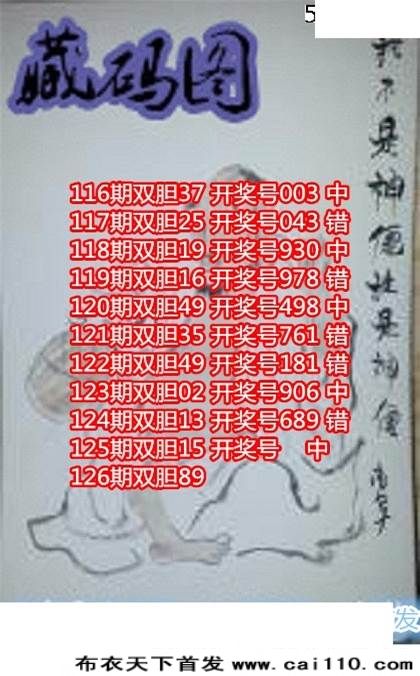 5
藏码图
116期双胆37 开奖号003 中
117期双胆25 开奖号043 错
118期双胆19 开奖号930 中
119期双胆16 开奖号978 错
120期双胆49 开奖号498 中
121期双胆35 开奖号761 错
122期双胆49 开奖号181 错
123期双胆02 开奖号906 中
124期双胆13 开奖号689 错
125期双胆15 开奖号 中
126期双胆89
我不是神仙他是神仙
发
布衣天下首发 www.cai110.com